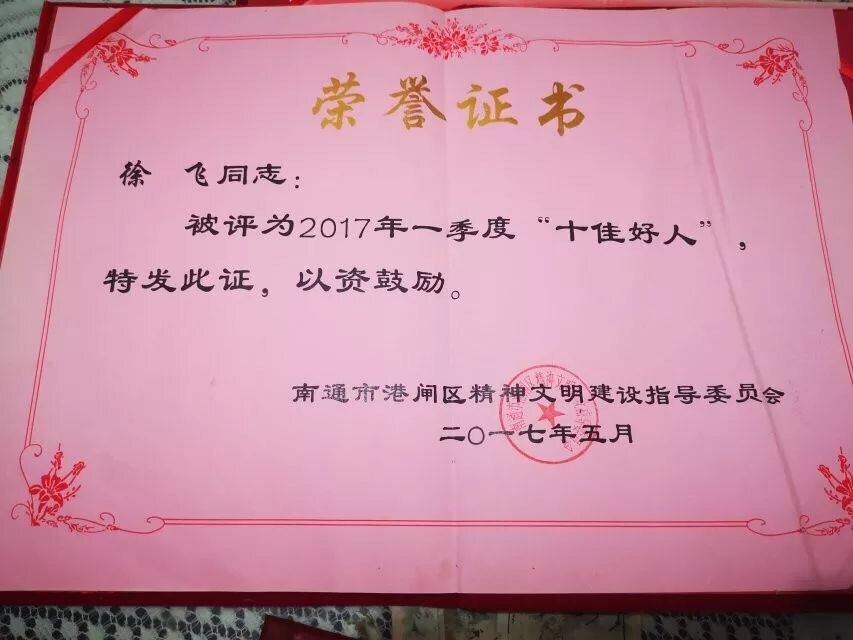 荣誉证书
徐 飞同志：
被评为2017年一季度“十佳好人”，
特发此证，以资鼓励。
南通市港闸区精神文明建设指导委员会
二〇一七年五月